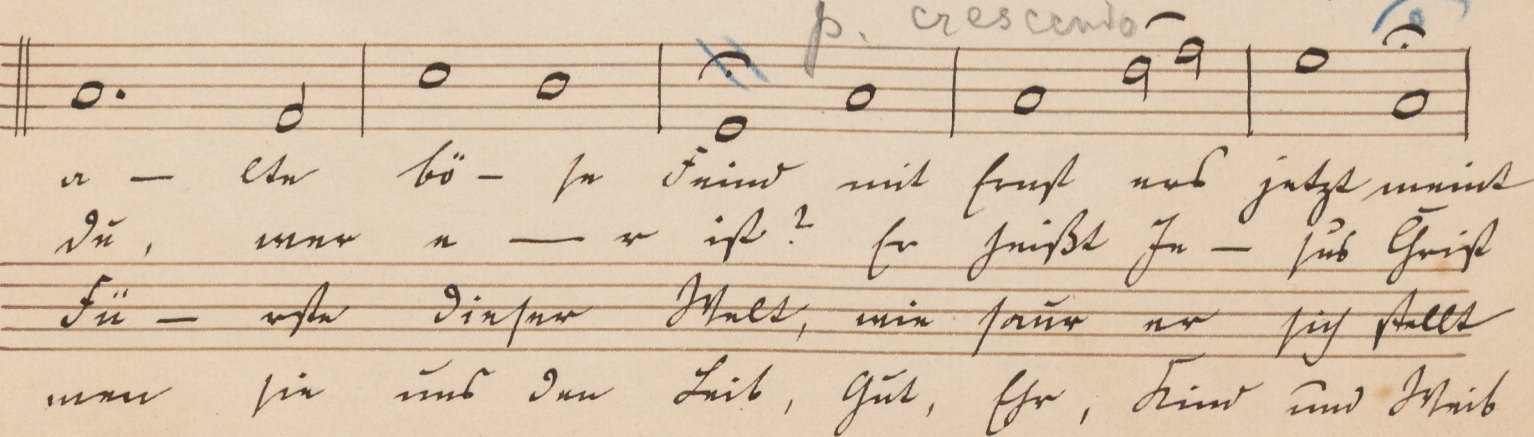 p. crescendo
a — lte bö – se Feind mit Ernst ers jetzt meint
du, wer e — r ist? Er heißt Je — sus Christ
Fü — rste dieser Welt, wie saur er sich stellt
men sie uns den Leib, Gut, Ehr, Kind und Weib